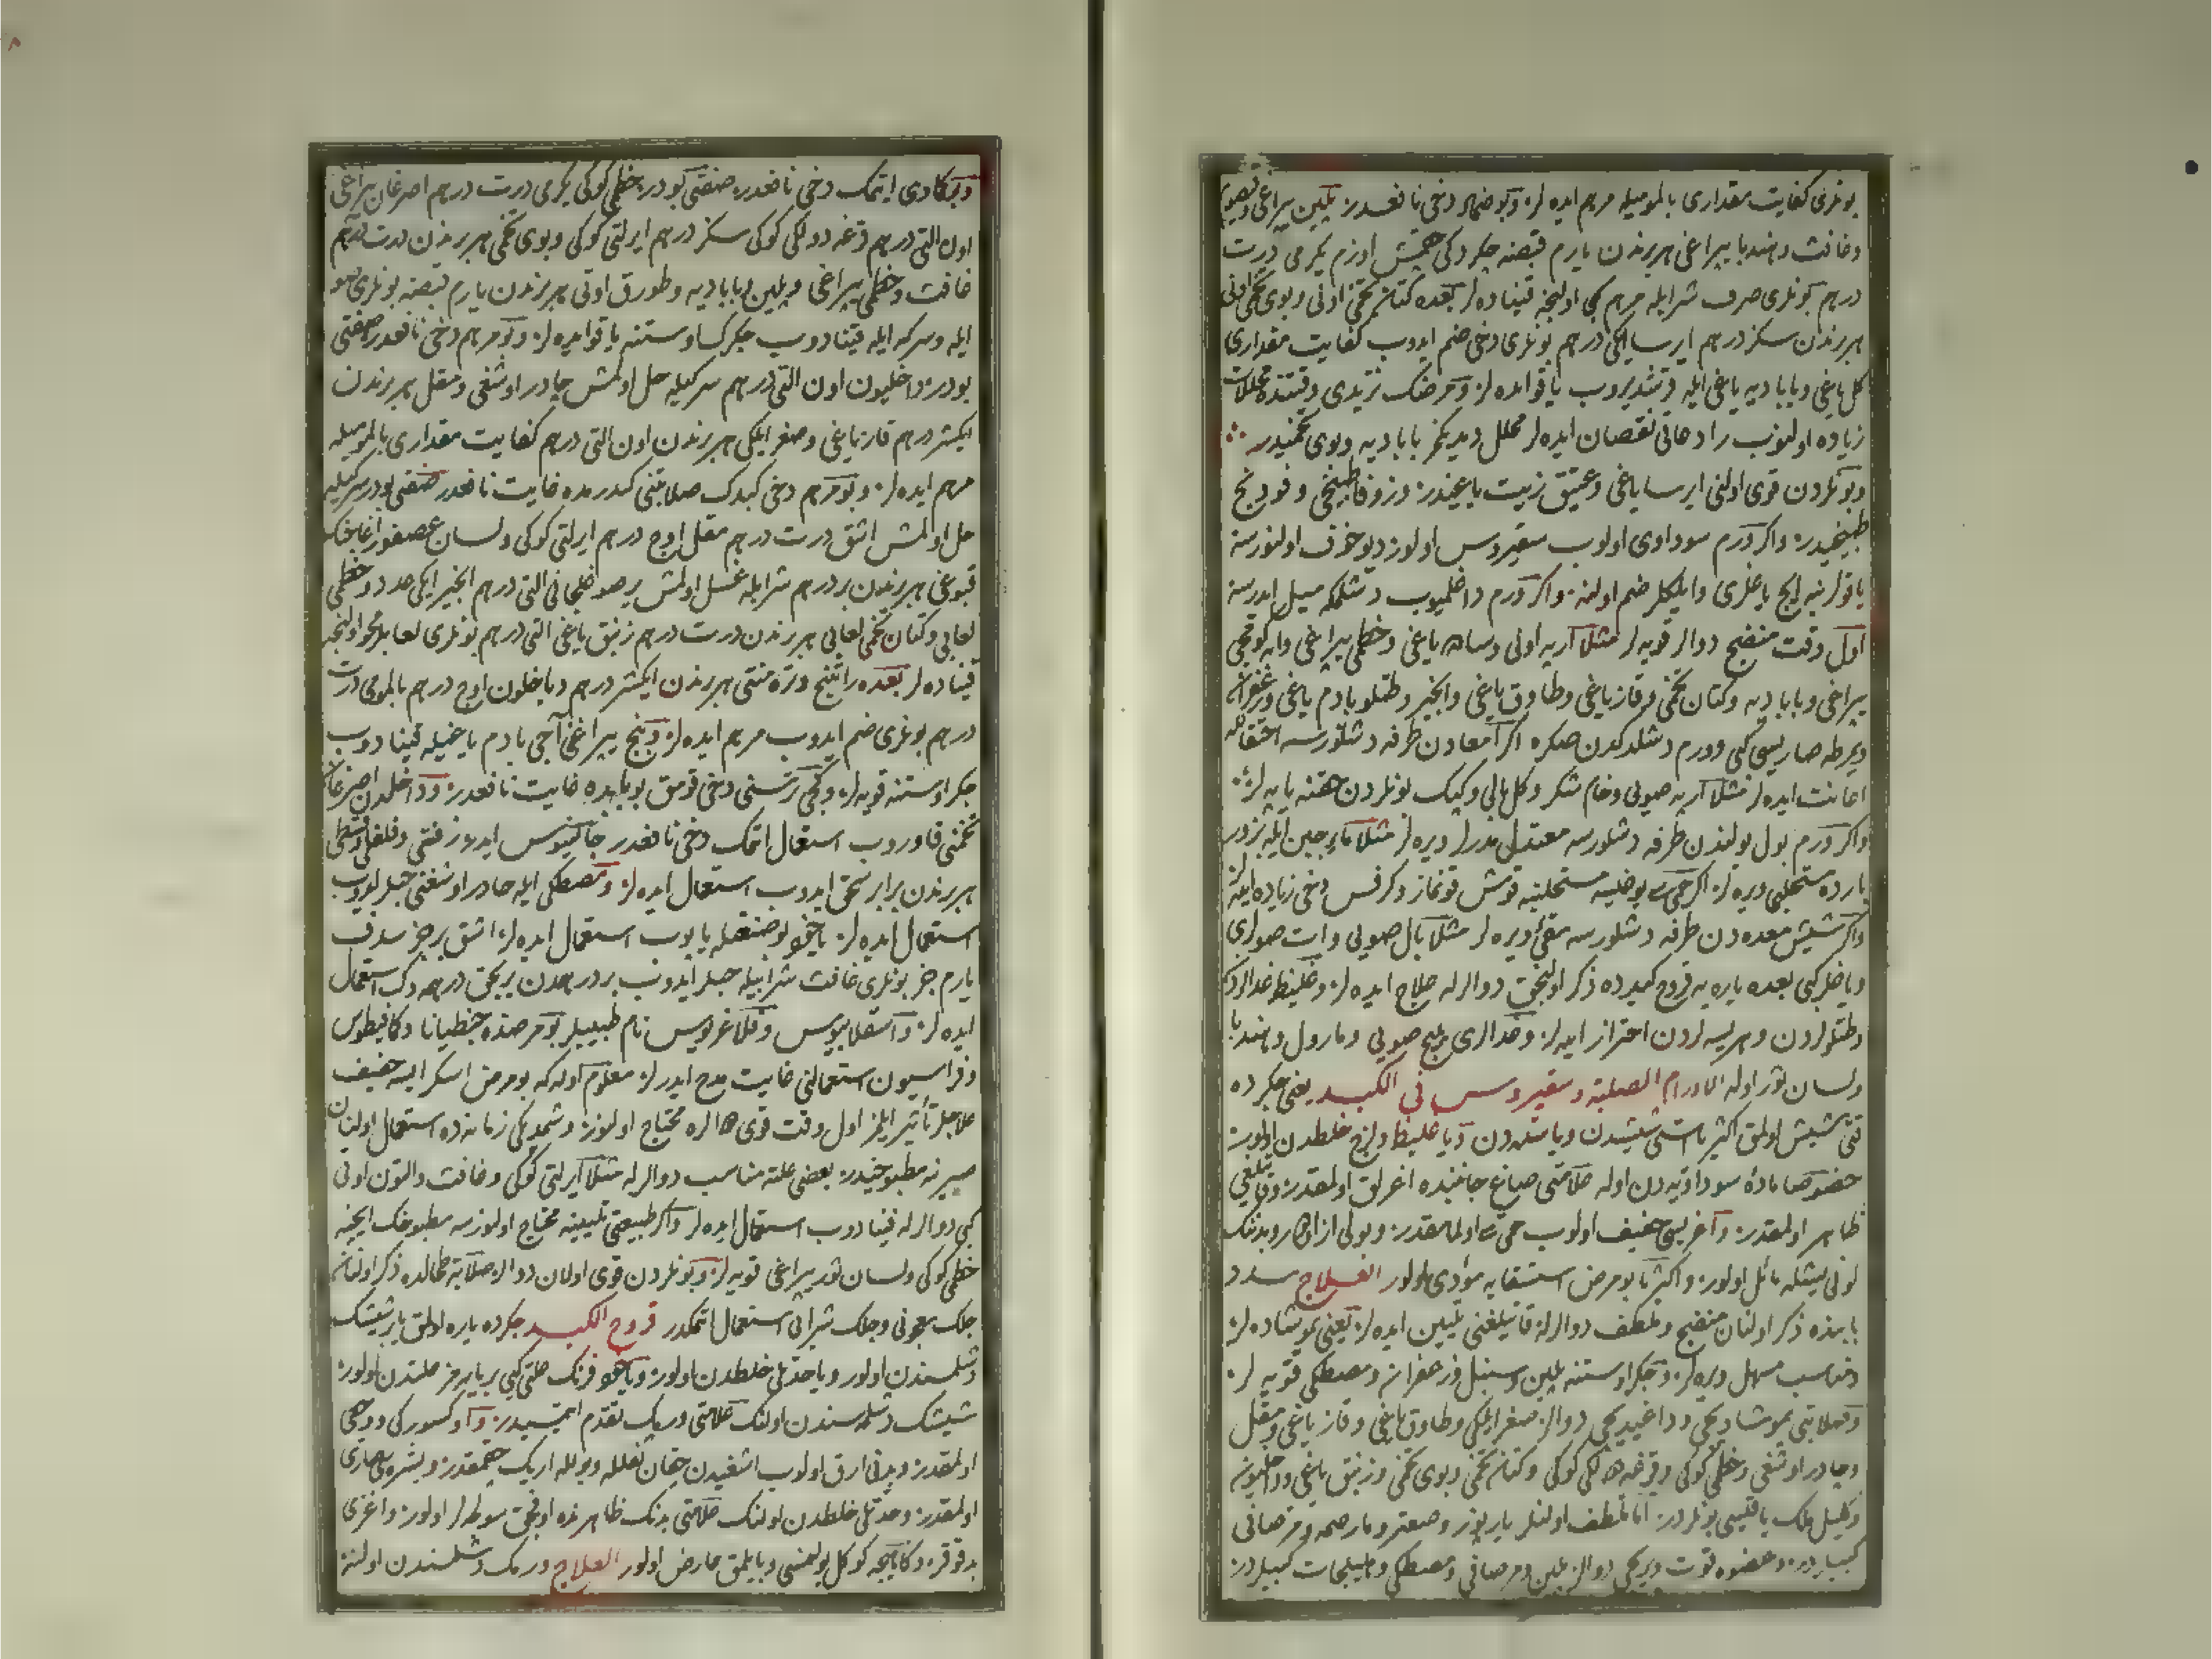 بونلری كفایت مقداری بالمومیله مرهم ایده لر وبو ضماد دخی نافعدر پلین پیراغی
وغافت وهندبا پیراغی هر برندن یارم قبضه چكردكی چقمش اوزم یكرمی درت
درهم بونلری صرف شرابله مرهم كبی اولنجه قیناده لر بعده كتان تخمی اونی وبوی تخمی اونی
هر برندن سكز درهم ایرسا ایكی درهم بونلری دخی ضم ایدوب كفایت مقداری
كل یاغی وبابادیه یاغی ایله قرشدیروب یاقو ایده لر ومرضك تزیدی وقتنده محللات
زیاده اولنوب رادعاتی نقصان ایده لر محلل دیدیكمز بابادیه وبوی تخمیدر
وبونلردن قوی اولنی ایرسا یاغی وعتیق زیت یاغیدر وزوفا طبیخی وفودنج
طبیخیدر واكر ورم سوداوی اولوب سقیروس اولور دیو خوف اولنورسه
یاقولرینه ایچ یاغلری وایلیكلر ضم اولنه واكر ورم داغلمیوب دشلمكه میل ایدرسه
اول وقت منضج دوالر قویه لر مثلا آرپه اونی وساده یاغی وخطمی پیراغی وابه كومجی
پیراغی وبابادیه وكتان تخمی وقاز یاغی وطاوق یاغی وانجیر وطتلو بادم یاغی وزعفران
ویمرطه صاریسی كبی وورم دشلدكدن صكره اكر امعادن طرفه دشلورسه احتقانله
اعانت ایده لر مثلا آرپه صویی وخام شكر وكل بالی وكپك بونلردن حقنه یاپه لر
واكر ورم بول یولندن طرفه دشلورسه معتدل مدرلر ویره لر مثلا ماء جبن ایله بزور
بارده مستحلبی ویره لر اكر حمی یوغیسه مستحلبنه قوش قونماز وكرفس دخی زیاده ایده لر
واكر شیش معده دن طرفه دشلورسه مقیء ویره لر مثلا بال صویی وات صولری
ویاغلر كبی بعده یاره یه قروح كبدده ذكر اولنجق دوالرله علاج ایده لر وغلیظ غدالردن
وطتلولردن وهریسه لردن احتراز ایده لر وغدالری پلیج صویی ومارول وهندبا
ولسان ثور اوله الاورام الصلبة وسقیروس فی الكبد یعنی جكرده
قتی شیش اولمق اكثریا سنی شیشدن ویا سده دن ویا غلیظ ولزج خلطدن اولور
خصوصا مادۀ سوداویه دن اوله علامتی صاغ جانبنده اغرلق اولمقدر وقاتیلغی
ظاهر اولمقدر واغریسی خفیف اولوب حمی اولمامقدر وبولی ازاولور وبدنك
لونی یشله مائل اولور واكثریا بومرض استسقایه مؤدی اولور العلاج سدد
بابنده ذكر اولنان منضج وملطف دوالرله قاتیلغنی تلیین ایده لر یعنی یومشاده لر
ومناسب مسهل ویره لر وجكر اوستنه پلین وسنبل وزعفران ومصطكی قویه لر
وصلابتی یومشادیجی وداغیدیجی دوالر صغر ایلیكی وطاوق یاغی وقاز یاغی ومقل
وچادر اوشغی وخطمی كوكی وقرغه دولكی كوكی وكتان تخمی وبوی تخمی وزنبق یاغی وداخلیون
واكلیل ملك یاقیسی بونلردر اما ملطف اولنلر پارپوز وصعتر ومارصمه ومرصافی
كبیلردر وعضوه قوت ویریجی دوالر پلین ومرصافی ومصطكی وهلیلجات كبیلردر
وبركادی ایتمك دخی نافعدر صنعتی بودر خطمی كوكی یكرمی درت درهم اصرغان پیراغی
اون التی درهم قرغه دولكی كوكی سكز درهم ایرلتی كوكی وبوی تخمی هر برندن درت درهم
غافت وخطمی پیراغی وپلین وبابادیه وطورق اوتی هر برندن یارم قبضه بونلری صو
ایله وسركه ایله قینادوب جكرك اوستنه یاقو ایده لر وبو مرهم دخی نافعدر صنعتی
بودر داخلیون اون التی درهم سركیله حل اولمش چادر اوشغی ومقل هر برندن
ایكیشر درهم قاز یاغی وصغر ایلیكی هر برندن اون التی درهم كفایت مقداری بالمومیله
مرهم ایده لر وبو مرهم دخی كبدك صلابتنی كیدرمده غایت نافعدر صنعتی بودر سركیله
حل اولمش اشق درت درهم مقل اوچ درهم ایرلتی كوكی ولسان عصفور اغاجنك
قبوغی هر برندن بر درهم شرابله غسل اولمش یر صوغلجانی التی درهم انجیر ایكی عدد وخطمی
لعابی وكتان تخمی لعابی هر برندن درت درهم زنبق یاغی التی درهم بونلری لعابلر محو اولنجه
قیناده لر بعده راتینج وتره منتی هر برندن ایكیشر درهم وباخلون اوچ درهم بالمومی درت
درهم بونلری ضم ایدوب مرهم ایده لر وبنج پیراغنی آجی بادم یاغیله قینادوب
جكر اوستنه قویه لر وكچی ترسنی دخی قومق بو بابده غایت نافعدر وداخلدن اصرغان
تخمنی قاوروب استعمال اتمك دخی نافعدر جالینوس ایدر زفتی وفلفلی وقسطی
هر برندن برابر سحق ایدوب استعمال ایده لر ومصطكی ایله چادر اوشغنی حبلر ایدوب
استعمال ایده لر یاخود بو صنعتله یاپوب استعمال ایده لر اشق بر جزء سدف
یارم جزء بونلری غافت شرابیله حبلر ایدوب بر درهمدن بر بچق درهمه دك استعمال
ایده لر واسقلاپیوس وقلاغریوس نام طبیبلر بو مرضده جنطیانا وكمافیطوس
وفراسیون استعمالنی غایت مدح ایدرلر معلوم اوله كه بو مرض اسكرایسه خفیف
علاجلر تأثیر ایلمز اول وقت قوی دوالره محتاج اولنور وشمدیكی زمانه ده استعمال اولنان
صبرینه مطبوخیدر بعضی علته مناسب دوالرله مثلا آیرلتی كوكی وغافت والتون اوتی
كبی دوالرله قینادوب استعمال ایده لر واكر طبیعتی تلیینه محتاج اولورسه مطبوخك ایچنه
خطمی كوكی ولسان ثور پیراغی قویه لر وبونلردن قوی اولان دوالر صلابة طحالده ذكر اولنان
چلك معجونی وچلك شرابی استعمال اتمكدر قروح الكبد جكرده یاره اولمق یا شیشك
دشلمسندن اولور ویا حدتلی خلطدن اولور ویاخود فرنك علتی كبی بر یارمز علتدن اولور
شیشك دشلمه سندن اولنك علامتی ورمك تقدم ایتمسیدر واوكسورك ودیدی
اولمقدر وبدنی ارق اولوب اشغیدن چقان ثفلله وبولله اریك چقمقدر وبشره سی صاری
اولمقدر وحدتلی خلطدن اولنك علامتی بدنك ظاهرنده اویجق سولكلر اولور واغزی
بد قوقر وكاهیجه كوكل بولنمسی وبایلمق عارض اولور العلاج ورمك دشلمسندن اولنه